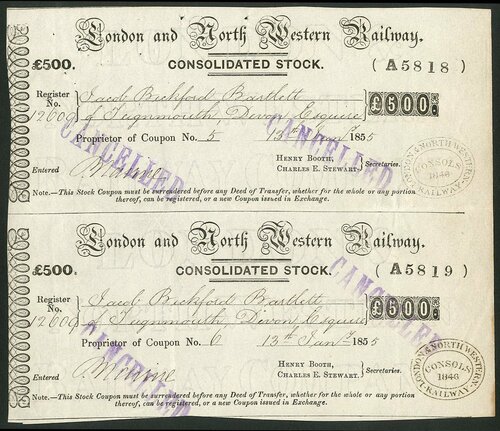 London and North Western Railway.
£500. CONSOLIDATED STOCK. (A5818)
Register No. 12609 Jacob Bickford Bartlett
of Teignmouth, Devon, Esquire
£500.
Proprietor of Coupon No. 5 13th Jany 1855
HENRY BOOTH,
CHARLES E. STEWART, Secretaries.
Entered
CANCELLED
CANCELLED
LONDON & NORTH WESTERN RAILWAY CONSOLS 1846
NOTE.—This Stock Coupon must be surrendered before any Deed of Transfer, whether for the whole or any portion
thereof, can be registered, or a new Coupon issued in Exchange.
London and North Western Railway.
£500. CONSOLIDATED STOCK. (A5819)
Register No. 12609 Jacob Bickford Bartlett
of Teignmouth, Devon, Esquire
£500.
Proprietor of Coupon No. 6 13th Jany 1855
HENRY BOOTH,
CHARLES E. STEWART, Secretaries.
Entered
CANCELLED
CANCELLED
LONDON & NORTH WESTERN RAILWAY CONSOLS 1846
NOTE.—This Stock Coupon must be surrendered before any Deed of Transfer, whether for the whole or any portion
thereof, can be registered, or a new Coupon issued in Exchange.